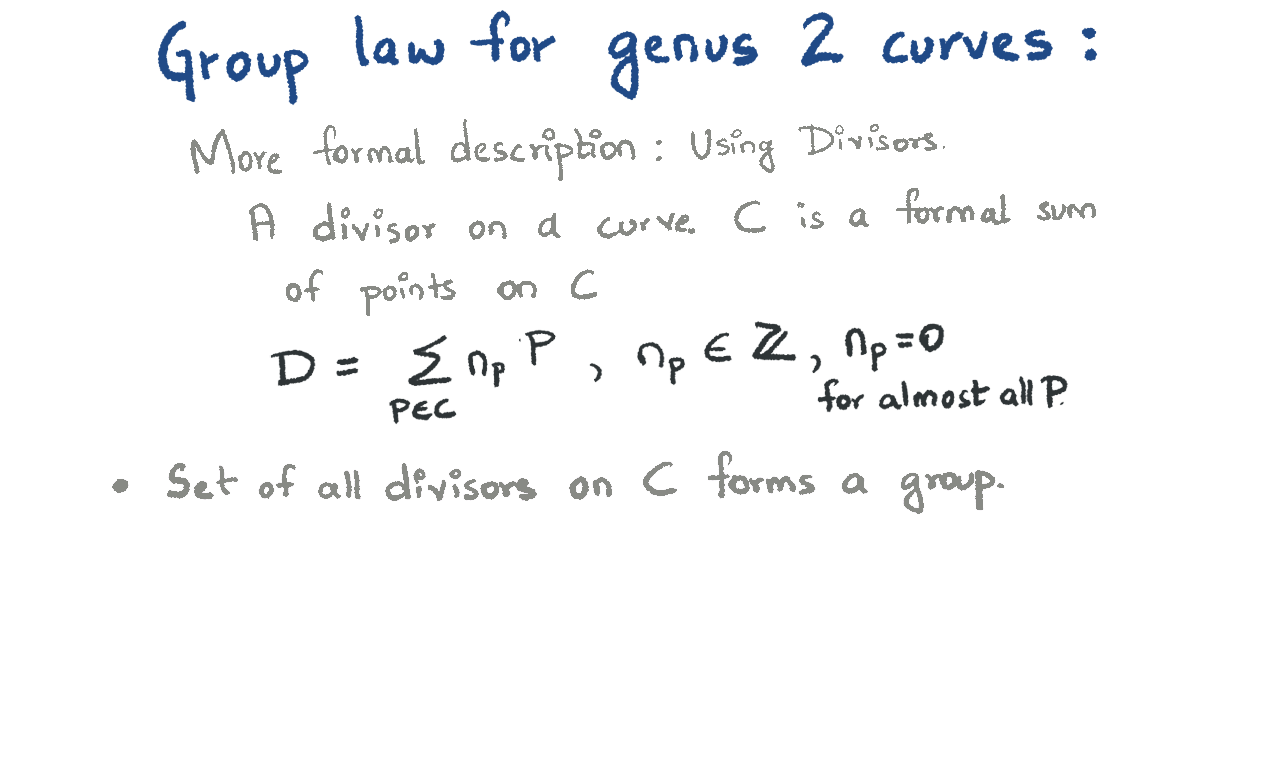 Group law for genus 2 curves :
More formal description : Using Divisors.
A divisor on a curve C is a formal sum
of points on C
D = ∑ n_p P , n_p ∈ ℤ, n_p = 0
P∈C for almost all P.
• Set of all divisors on C forms a group.